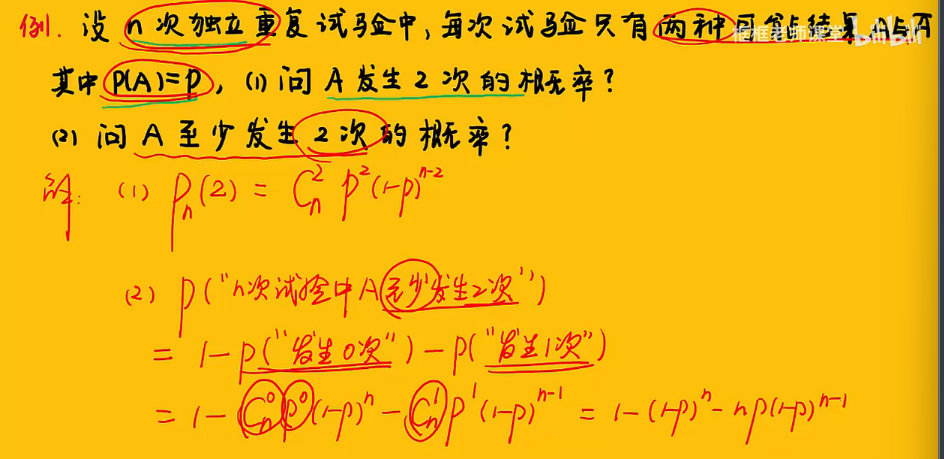 例. 设 n 次独立重复试验中, 每次试验只有两种可能结果 A与Ā
其中 P(A)=p, (1) 问 A 发生 2 次的概率?
(2) 问 A 至少发生 2次的概率?
解: (1) Pₙ(2) = Cₙ² p²(1-p)ⁿ⁻²
(2) P("n次试验中A至少发生2次")
= 1-P("发生0次")-P("发生1次")
= 1- Cₙ⁰ p⁰ (1-p)ⁿ - Cₙ¹ p¹ (1-p)ⁿ⁻¹ = 1-(1-p)ⁿ-np(1-p)ⁿ⁻¹
框框老师课堂 bilibili